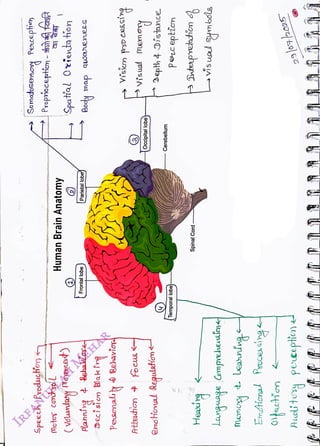 Human Brain Anatomy
① Frontal lobe
Speech Production
Motor control
(Voluntary Movement)
Planning & Behavior
Decision Making
Personality & Behavior
Attention & Focus
Emotional Regulation
② Parietal lobe
Somatosensory Perception
Proprioception -
Spatial Orientation
Body map awareness
③ Occipital lobe
Vision processing
Visual Memory
Depth & Distance
Perception
Interpretation of
Visual symbols
Cerebellum
Spinal Cord
④ Temporal lobe
Hearing
Language Comprehension
Memory & Learning
Emotional Processing
Olfaction
Auditory perception